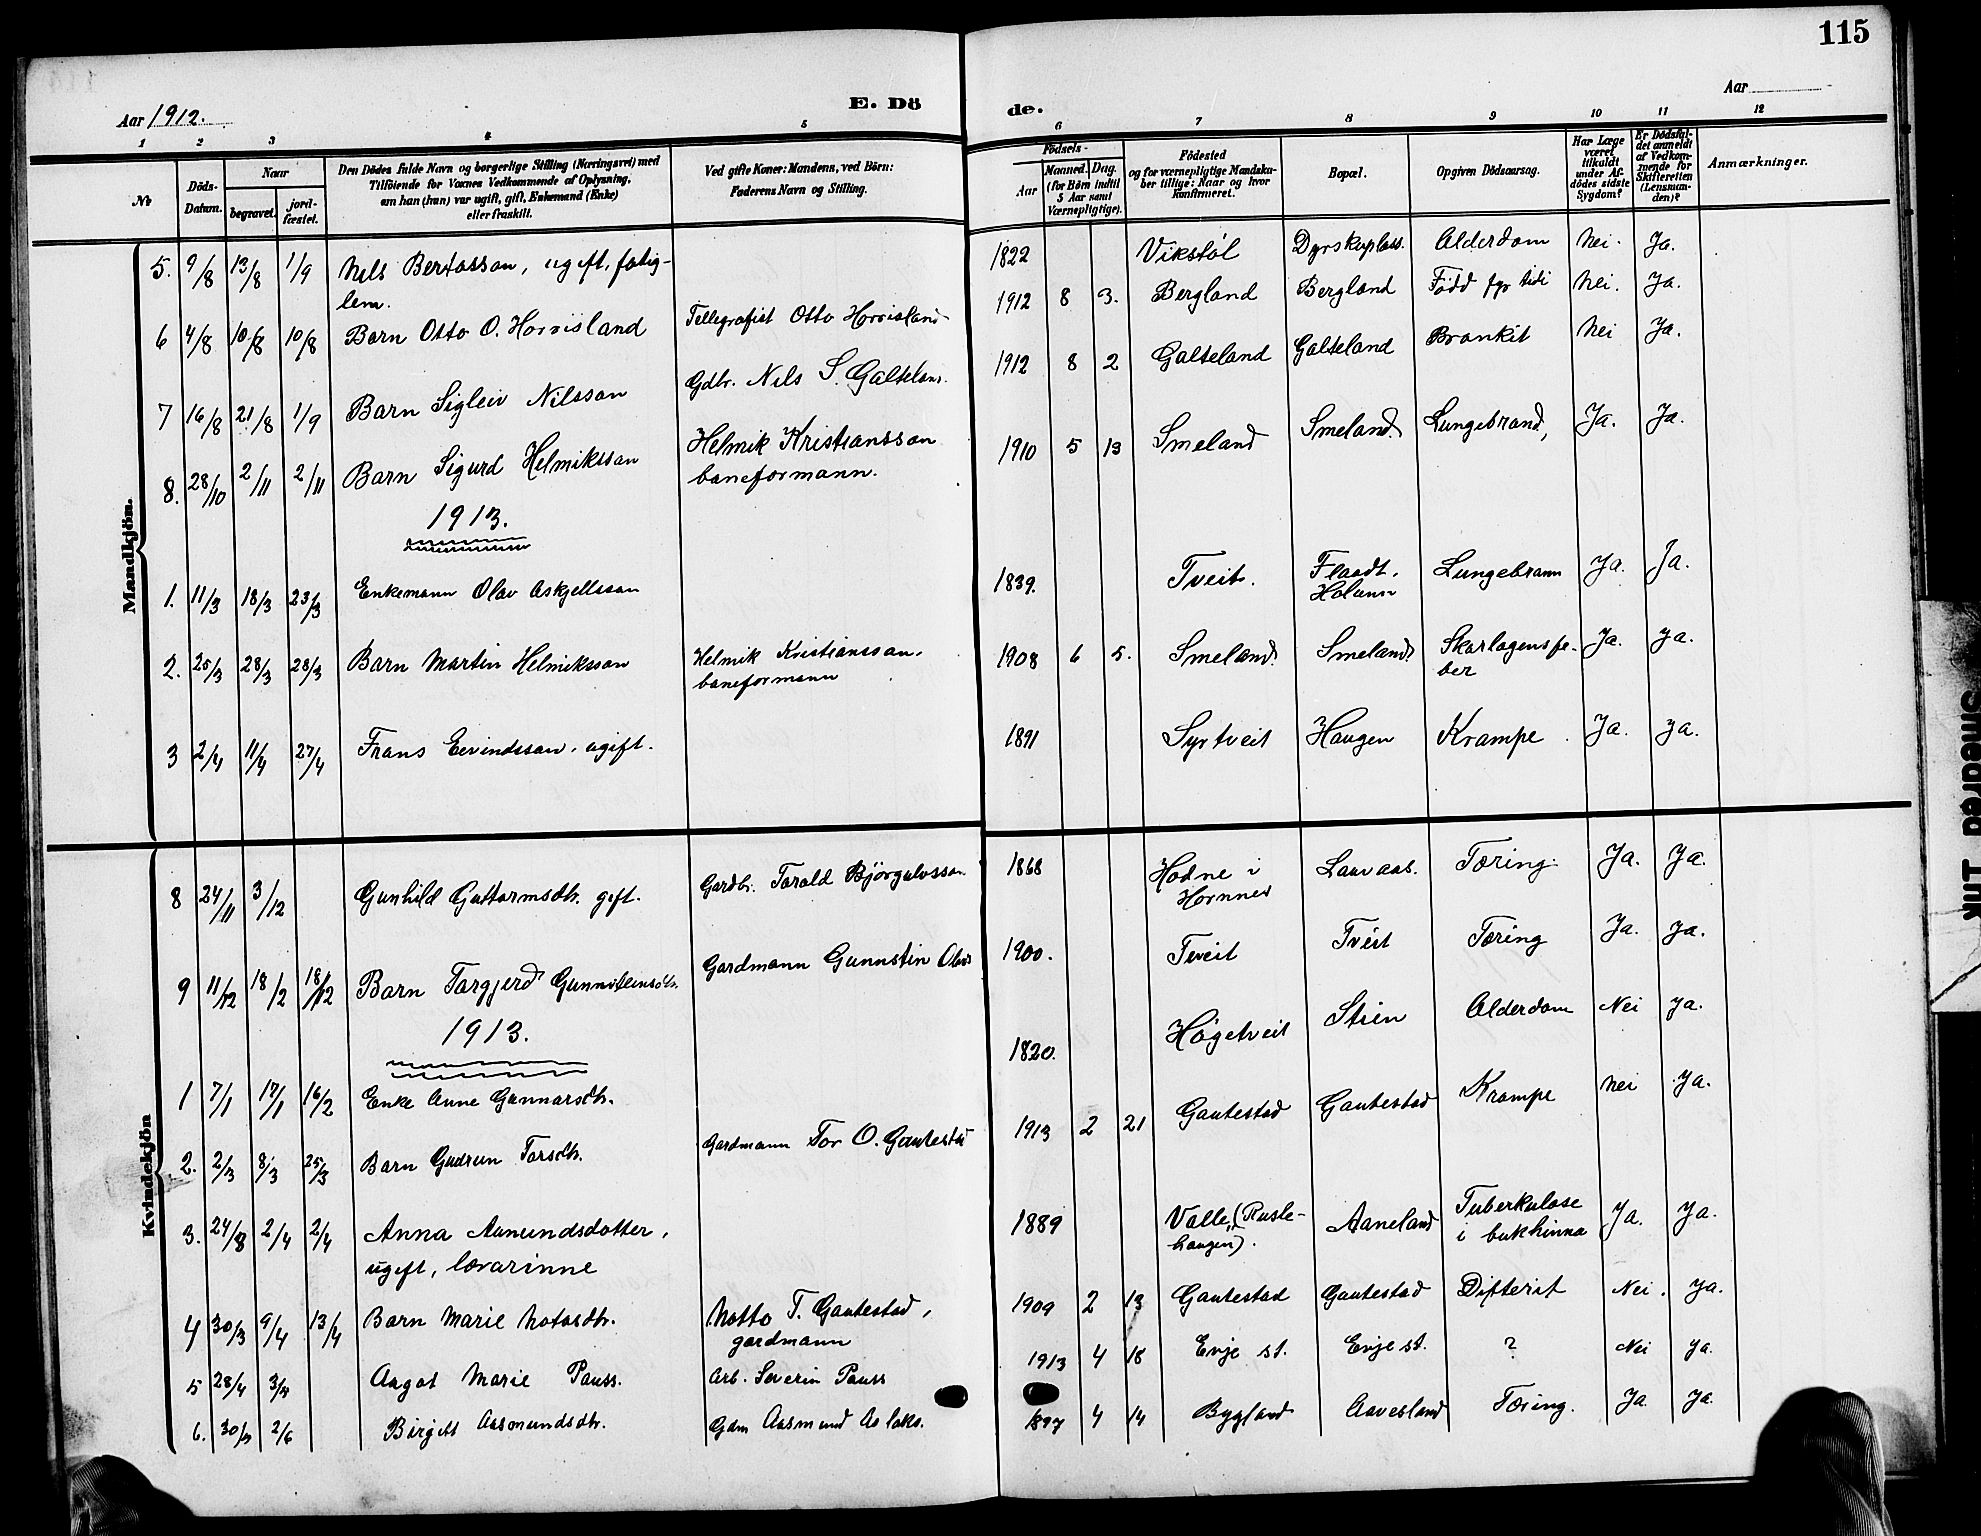 115
Aar 1912.
E. Dö
de.
Aar
1 2 3 4 5 6 7 8 9 10 11 12
№
Döds-Datum.
Naar
begravet.
jord-fæstet.
Den Dödes fulde Navn og borgerlige Stilling (Næringsvei) med
Tilföiende for Voxnes Vedkommende af Oplysning,
om han (hun) var ugift, gift, Enkemand (Enke)
eller fraskilt.
Ved gifte Koner: Mandens, ved Börn:
Faderens Navn og Stilling.
Födsels-
Aar
Maaned. Dag.
(for Börn indtil
5 Aar samt
Værnepligtige).
Födested
og for værnepligtige Mandska-
ber tillige: Naar og hvor
konfirmeret.
Bopæl.
Opgiven Dödsaarsag.
Har Læge
været
tilkaldt
under Af-
dödes sidste
Sygdom?
Er Dödsfal-
det anmeldt
af Vedkom-
mende for
Skifteretten
(Lensman-
den)?
Anmærkninger.
Mandkjön.
5. 9/8 13/8 1/9 Nels Bertosson, ugift, fatig- 1822 Vikstøl Dyrskuplass. Alderdom Nei. Ja.
lem.
6 4/8 10/8 10/8 Barn Otto O. Horrisland Tellegrafist Otto Horrisland 1912 8 3. Bergland Bergland Fødd fyr tidi Nei. Ja.
7 16/8 21/8 1/9 Barn Sigleiv Nilsson Gdbr. Nils S. Galteland 1912 8 2 Galteland Galteland Bronkit Nei Ja.
8. 28/10 2/11 2/11 Barn Sigurd Helmiksson Helmik Kristiansson 1910 5 13 Smeland Smeland Lungebrand, Ja. Ja.
baneformann.
1913.
1. 11/3 18/3 23/3 Enkemann Olav Askjellsson 1839. Tveit. Flaadt. Lungebrann Ja. Ja.
2. 25/3 28/3 28/3 Barn Martin Helmiksson Helmik Kristiansson, 1908 6 5. Smeland Smeland Skarlagensfe- Ja. Ja.
baneformann ber
3 2/4 11/4 27/4 Frans Eivindsson, ugift. 1891 Syrtveit Haugen Krampe Ja. Ja.
Kvindekjön
8 24/11 3/12 Gunhild Guttormsdtr. gift. Gardbr. Torald Bjørgulvsson 1868 Hodne i Lauvaas. Tæring. Ja. Ja.
Hornnes
9 11/12 18/2 18/12 Barn Torgjerd Gunnsteinsdtr. Gardmann Gunnstin Olavs 1900. Tveit Tveit Tæring Ja. Ja.
1913.
1 7/1 17/1 16/2 Enke Anne Gunnarsdtr. 1820. Høgetveit Stien Alderdom Nei Ja.
2. 2/3 8/3 25/3 Barn Gudrun Torsdtr. Gardmann Tor O. Gautestad 1913 2 21 Gautestad Gautestad Krampe Nei Ja.
3. 24/3 2/4 2/4 Anna Aamundsdotter, 1889 Valle (Rusle- Aaneland Tuberkulose Ja. Ja.
ugift, lærarinne haugen). i bukhinna
4 30/3 9/4 13/4 Barn Marie Notosdtr. Notto T. Gautestad, 1909 2 13 Gautestad Gautestad Difterit Nei. Ja.
gardmann
5 28/4 3/5 Aagot Marie Pauss. Arb. Severin Pauss 1913 4 18 Evje st. Evje st. ? Nei Ja.
6. 30/5 2/6 Birgitt Aasmundsdtr. Gdm Aasmund Aslaks. 1897 4 14 Bygland Aavesland Tæring. Ja Ja.